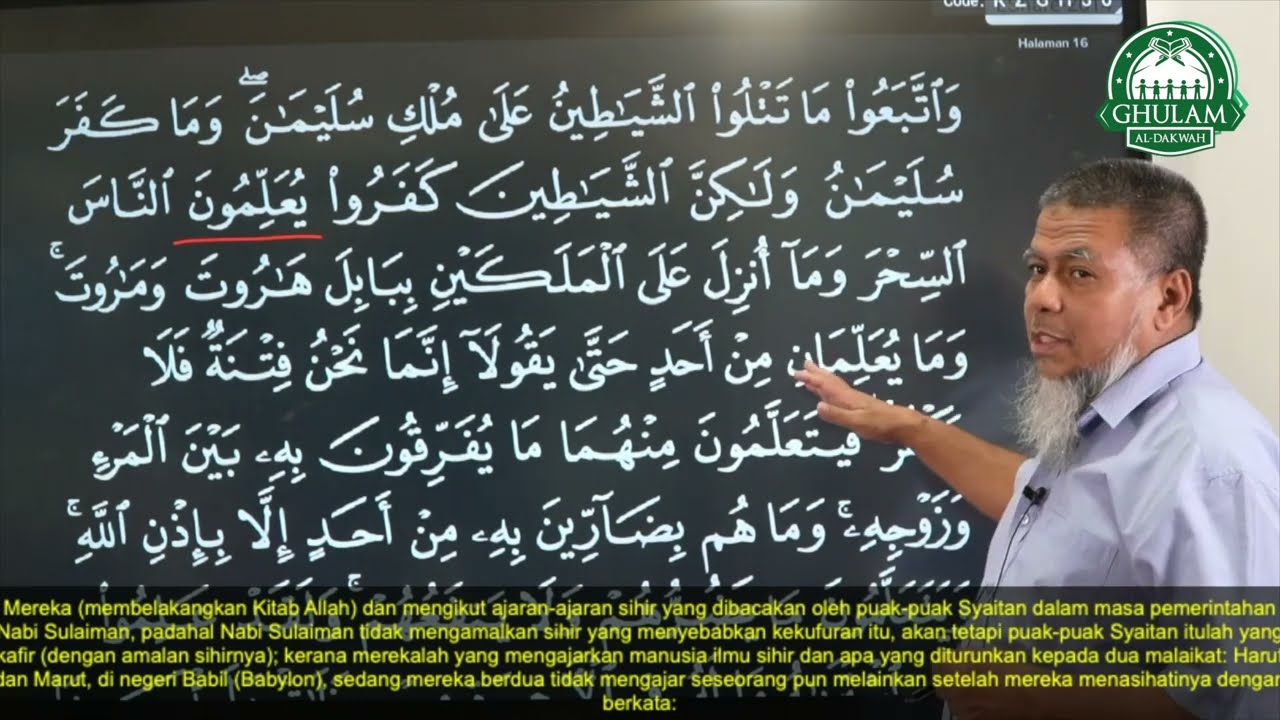 Code: K Z G H 5 6
Halaman 16
GHULAM
AL-DAKWAH
وَٱتَّبَعُوا۟ مَا تَتْلُوا۟ ٱلشَّيَـٰطِينُ عَلَىٰ مُلْكِ سُلَيْمَـٰنَ ۖ وَمَا كَفَرَ
سُلَيْمَـٰنُ وَلَـٰكِنَّ ٱلشَّيَـٰطِينَ كَفَرُوا۟ يُعَلِّمُونَ ٱلنَّاسَ
ٱلسِّحْرَ وَمَآ أُنزِلَ عَلَى ٱلْمَلَكَيْنِ بِبَابِلَ هَـٰرُوتَ وَمَـٰرُوتَ ۚ
وَمَا يُعَلِّمَانِ مِنْ أَحَدٍ حَتَّىٰ يَقُولَآ إِنَّمَا نَحْنُ فِتْنَةٌ فَلَا
فَيَتَعَلَّمُونَ مِنْهُمَا مَا يُفَرِّقُونَ بِهِۦ بَيْنَ ٱلْمَرْءِ
وَزَوْجِهِۦ ۚ وَمَا هُم بِضَآرِّينَ بِهِۦ مِنْ أَحَدٍ إِلَّا بِإِذْنِ ٱللَّهِ ۚ
Mereka (membelakangkan Kitab Allah) dan mengikut ajaran-ajaran sihir yang dibacakan oleh puak-puak Syaitan dalam masa pemerintahan
Nabi Sulaiman, padahal Nabi Sulaiman tidak mengamalkan sihir yang menyebabkan kekufuran itu, akan tetapi puak-puak Syaitan itulah yang
kafir (dengan amalan sihirnya); kerana merekalah yang mengajarkan manusia ilmu sihir dan apa yang diturunkan kepada dua malaikat: Harut
dan Marut, di negeri Babil (Babylon), sedang mereka berdua tidak mengajar seseorang pun melainkan setelah mereka menasihatinya dengan
berkata: